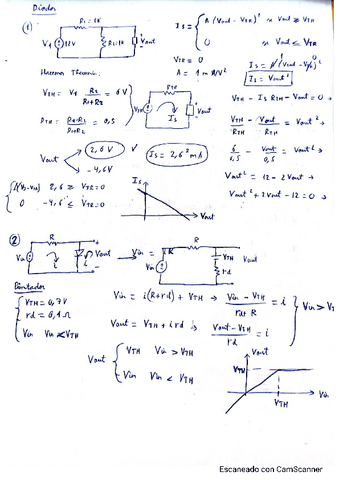 Diodos
(1)
R1 = 1K
V1
12V
R2 = 1K
Vout
Is = { A (Vout - VTR)² si Vout ≥ VTR
0 si Vout ≤ VTR
VTR = 0
A = 1 mA/V²
Is = (Vout - VTR)²
Is = Vout²
VTH = V1 R2 / (R1+R2) = 6V
RTH = R1·R2 / (R1+R2) = 0,5
RTH
VTH
Is
Vout
VTH - Is RTH - Vout = 0 →
VTH/RTH - Vout/RTH = Vout²
6/0,5 - Vout/0,5 = Vout²
Vout² = 12 - 2Vout →
Vout² + 2Vout - 12 = 0 →
Vout
2,6V ✓
-4,6V
Is = 2,6² mA
2,6 ≥ VTR = 0
0 -4,6 ≤ VTR = 0
Is
Vout
(2)
R
Vin
i
Vout
Vin =
R
VTH
rd
Vin
Limitador
{ VTH = 0,7V
rd = 0,1Ω
Vin Vin < VTH
Vin = i(R+rd) + VTH → (Vin - VTH)/(rd+R) = i
Vout = VTH + i rd → (Vout - VTH)/rd = i
} Vin > VT
Vout { VTH Vin > VTH
Vin Vin < VTH
Vout
VTH
VTH
Vin
Escaneado con CamScanner